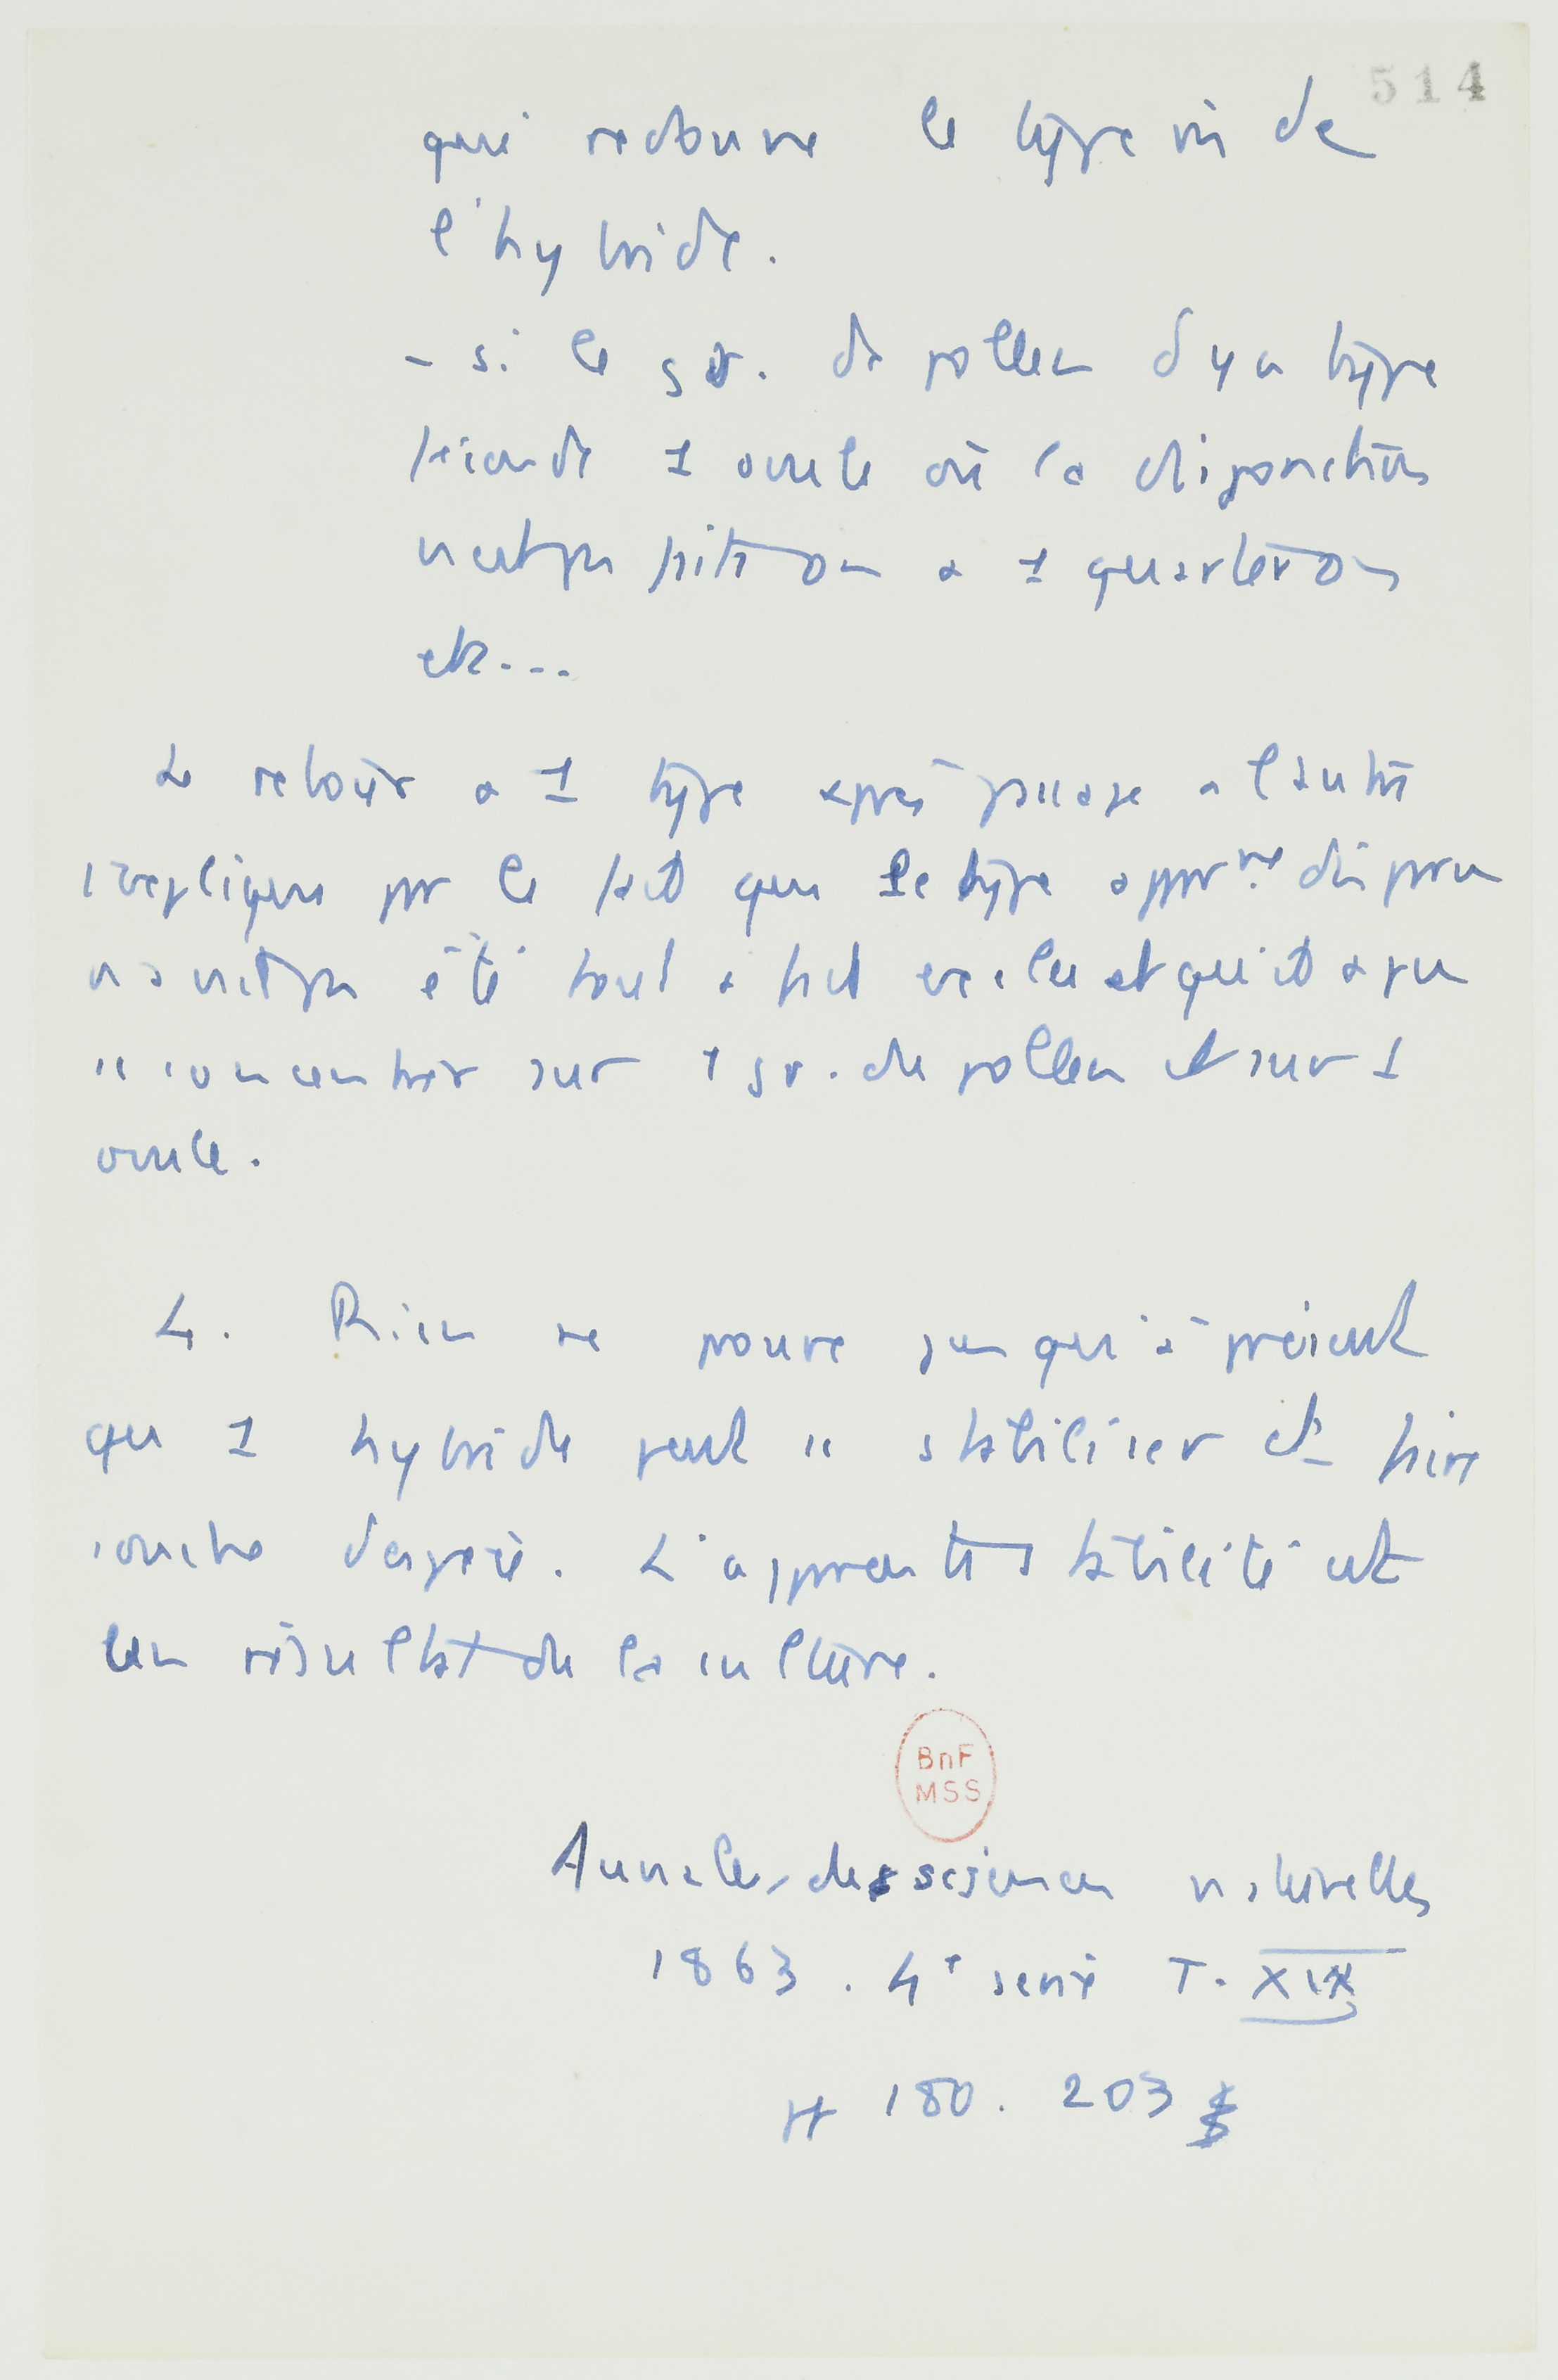 514
qui redonne le type mi de
l'hybride.
- si le gr. de pollen d'un type
féconde 1 ovule où la disjonction
n'est pas faite on a 1 quarteron
etc...
Le retour à 1 type après passage à l'autre
s'explique par le fait que le type disparu
n'avait pas été tout à fait exclu et qu'il a pu
se concentrer sur 1 gr. de pollen et sur 1
ovule.
4. Rien ne prouve jusqu'à présent
qu 1 hybride peut se stabiliser et faire
souche d'espèce. L'apparente stabilité est
un résultat de la culture.
BnF
MSS
Annales des sciences naturelles
1863. 4e série T. XIX
pp 180. 203